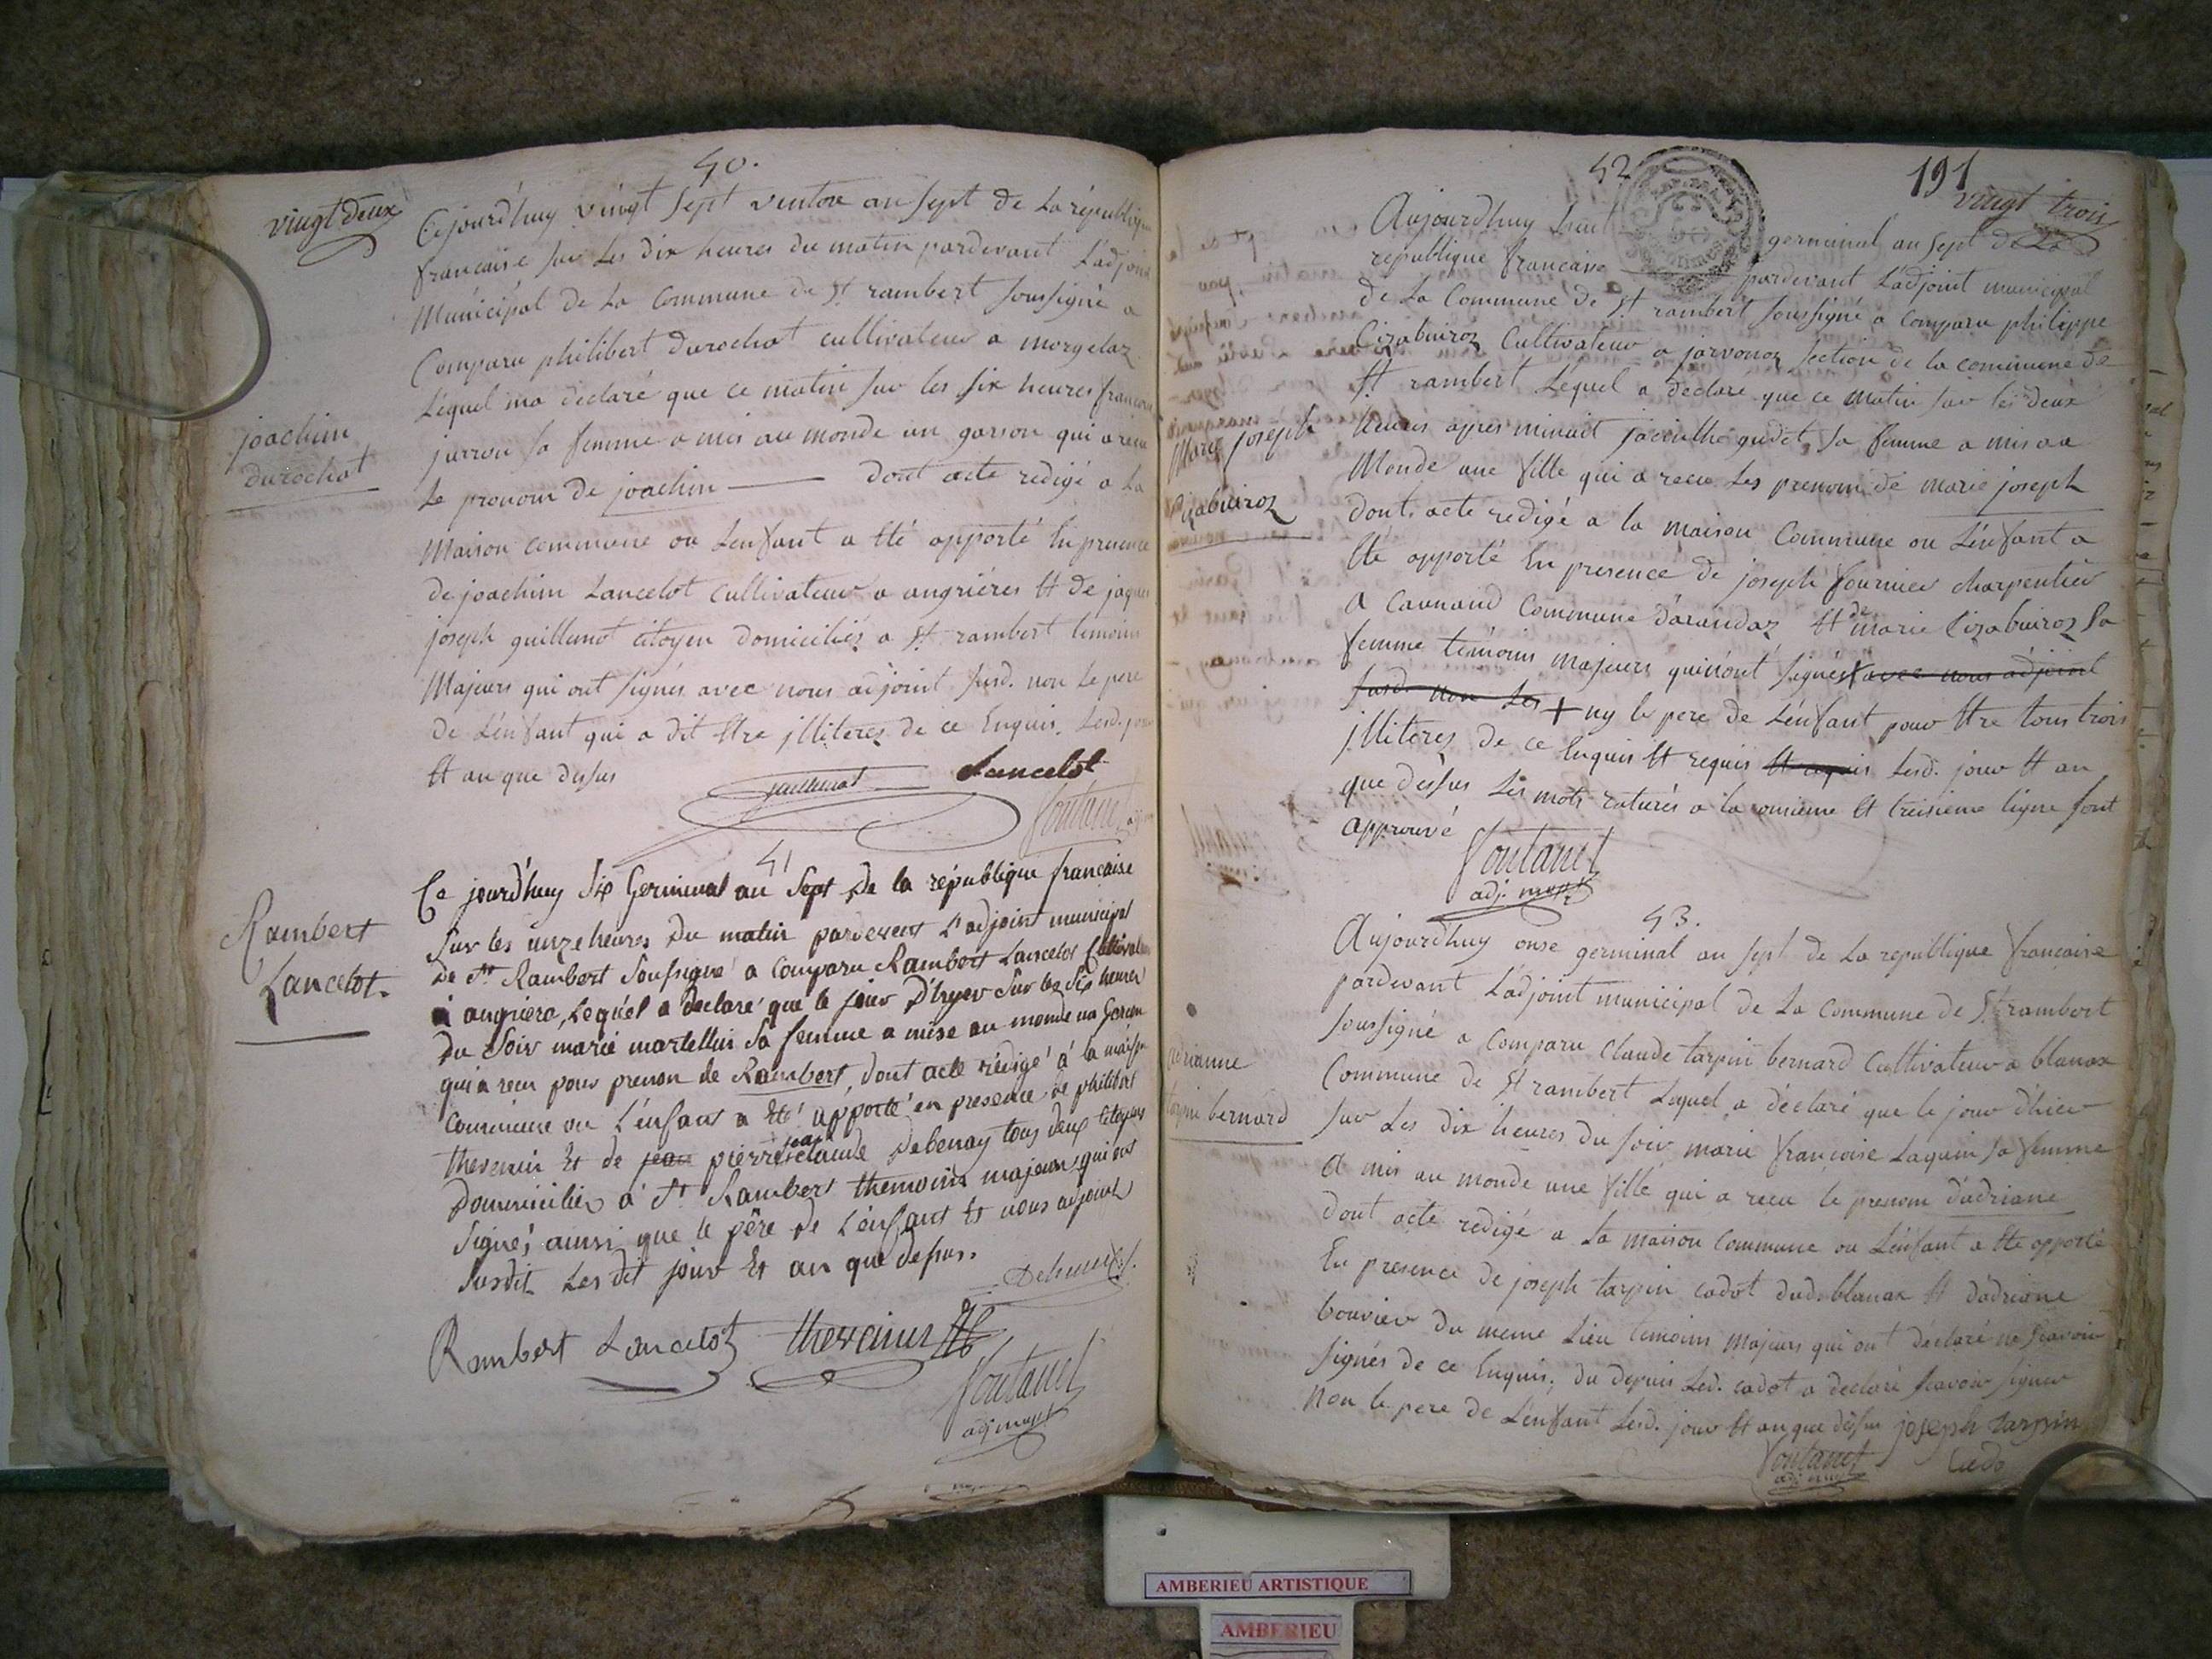 vingt deux
40.
Cejourd'huy vingt sept ventose an sept de la république
francaise sur les dix heures du matin pardevant L'adjoint
Municipal de La Commune de St. rambert soussigné a
Comparu philibert durochat cultivateur a morgelaz
Lequel ma declaré que ce matin sur les six heures francoise
juvron sa femme a mis au monde un garson qui a recu
joachim
durochat
Le prenom de joachim dont acte redigé a La
Maison commune ou Lenfant a Eté apporté En presence
de joachim Lancelot cultivateur a angriéres Et de jaques
joseph guillemot citoyen domiciliés a St. rambert temoins
Majeurs qui ont signés avec nous adjoint susd. non Le pere
de Lénfant qui a dit Etre jlliteres de ce Enquis. Lesd. jour
Et an que dessus
guillemot Lancelot
Fontanel adj.
41
Ce jourd'huy Six Germinal an Sept de la république francaise
Sur les unze heures du matin pardevent L'adjoint municipal
Rambert
Lancelot.
de St. Rambert Soussigné a comparu Rambert Lancelot Cultivateur
à angriere, Lequel a declaré que le jour d'hyer Sur les Six heures
du Soir marie martellin Sa femme a mise au monde un Garcon
qui a recu pour prenon de Rambert, dont acte rédigé à la maison
Commune ou L'enfant a Eté apporté en presence de philibert
thevenin Et de jean pierre jean claude debenay tous deux citoyens
Domiciliés à St. Rambert themoins majeurs qui ont
Signés ainsi que le père de L'enfant Et nous adjoint
Susdit Les dit jour Et an que dessus.
Rambert Lancelot thevenin
Fontanel
adj. mupal
191
vingt trois
42
Aujourdhuy huit germinal an sept de La
republique francaise pardevant L'adjoint municipal
de La Commune de St. rambert soussigné a Comparu philippe
Cizabuiroz Cultivateur a javornoz section de la commune de
St. rambert Léquel a declaré que ce Matin sur les deux
Marie joseph
Cizabuiroz
heures apres minuit jacinthe gudet sa femme a mis au
Monde une fille qui a recu Les prenom de marie joseph
dont acte redigé a la maison Commune ou Lénfant a
Eté apporté En presence de joseph fournier charpentier
a Commune d'arandaz Et de marie Cizabuiroz sa
femme témoins majeurs quinont signés avec nous adjoint
susd. non Les + ny le pere de Lénfant pour Etre tous trois
jlliteres de ce Enquis Et requis Et requis Lesd. jour Et an
que dessus Les mots raturés a la onsieme Et treisieme ligne sont
approuvé
Fontanel
adj. mupal
43.
Aujourdhuy onse germinal an sept de La republique francaise
pardevant L'adjoint municipal de La Commune de St. rambert
soussigné a comparu Claude tarpin bernard Cultivateur a blanax
adrianne
tarpin bernard
Commune de St rambert Lequel a déclaré que le jour d'hier
sur Les dix heures du soir marie francoise Laguin sa femme
a mis au monde une fille qui a recu le prenom d'adriane
dont acte redigé a La maison Commune ou Lénfant a Eté apporté
En presence de joseph tarpin cadot dud. blanax Et d'adriane
bouvier du meme Lieu temoins majeurs qui ont déclaré ne scavoir
signés de ce Enquis, du depuis Led. cadot a declaré scavoir signer
Non le pere de Lénfant Lesd. jour Et an que dessus joseph tarpin
Fontanel Cado
adj. mupal
AMBERIEU ARTISTIQUE
AMBERIEU